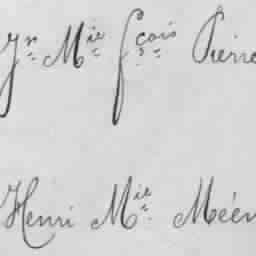 Jn Mie fçois Pierre
Henri Mie Méen